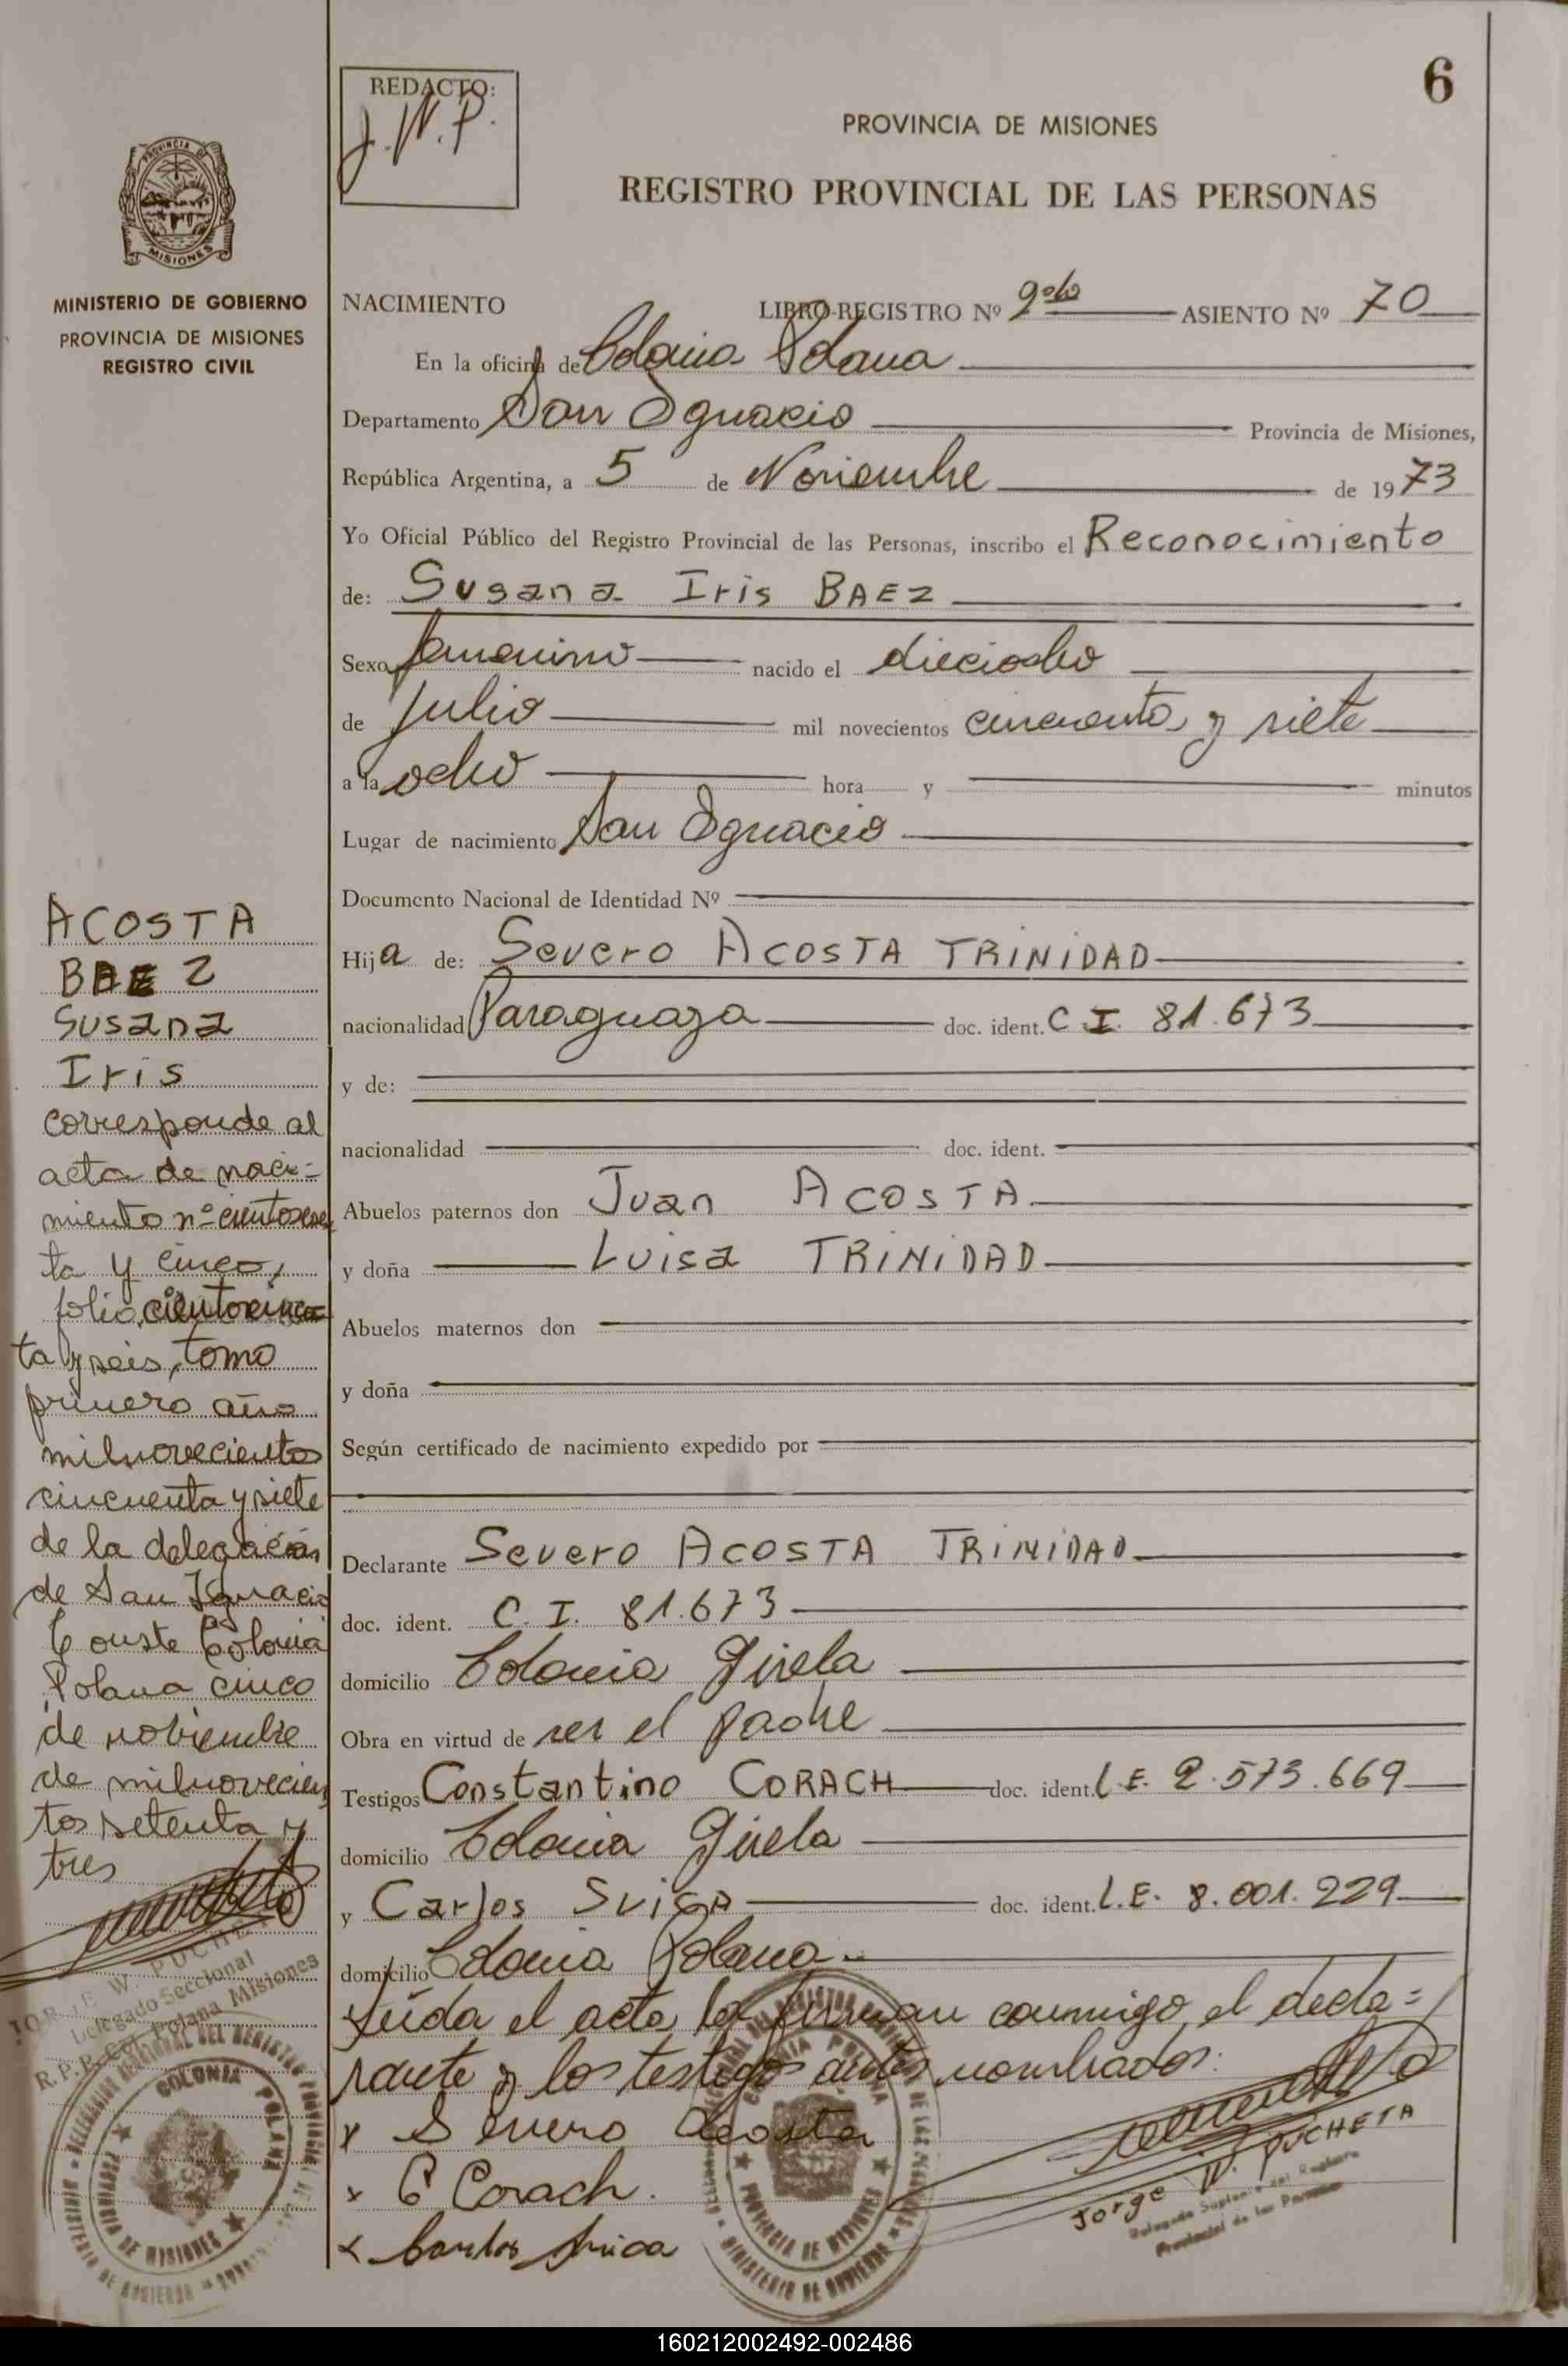 6
REDACTO:
J.W.P.
PROVINCIA DE MISIONES
REGISTRO PROVINCIAL DE LAS PERSONAS
MISIONES
MINISTERIO DE GOBIERNO
PROVINCIA DE MISIONES
REGISTRO CIVIL
NACIMIENTO LIBRO-REGISTRO Nº ASIENTO Nº 70
En la oficina de Colonia Polana
Departamento San Ignacio Provincia de Misiones,
República Argentina, a 5 de Noviembre de 1973
Yo Oficial Público del Registro Provincial de las Personas, inscribo el Reconocimiento
de: Susana Iris BAEZ
Sexo femenino nacido el dieciocho
de Julio mil novecientos cincuenta y siete
a la ocho hora y minutos
Lugar de nacimiento San Ignacio
Documento Nacional de Identidad Nº
Hija de: Severo ACOSTA TRINIDAD
nacionalidad Paraguaya doc. ident. C I. 81.673
y de:
nacionalidad doc. ident.
Abuelos paternos don Juan ACOSTA
y doña Luisa TRINIDAD
Abuelos maternos don
y doña
Según certificado de nacimiento expedido por
Declarante Severo ACOSTA TRINIDAD
doc. ident. C. I. 81.673
domicilio Colonia Gisela
Obra en virtud de ser el padre
Testigos Constantino CORACH doc. ident. L E. 2.573.669
domicilio Colonia Gisela
y Carlos SVICA doc. ident. L.E. 8.001.229
domicilio Colonia Polana
Leída el acta la firman conmigo, el decla=
rante y los testigos antes nombrados:
x Severo Acosta
x C Corach.
x Carlos Svica
Jorge W. PUCHETA
Delegado Suplente del Registro
Provincial de las Personas
ACOSTA
BAEZ
Susana
Iris
corresponde al
acta de naci=
miento nº
ta y cinco,
folio
ta y seis, tomo
primero año
milnovecientos
cincuenta y siete
de la delegación
de San Ignacio
Conste Colonia
Polana cinco
de nobiembre
de milnovecien
tos setenta y
tres
JORGE W. PUCHETA
Delegado Seccional
R.P.P. Col. Polana Misiones
COLONIA POLANA
PROVINCIA DE MISIONES
MINISTERIO DE GOBIERNO
COLONIA POLANA
PROVINCIA DE MISIONES
MINISTERIO DE GOBIERNO
160212002492-002486